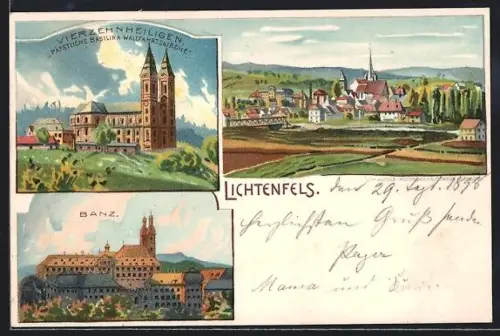 VIERZEHNHEILIGEN.
"PÄPSTLICHE BASILIKA WALLFAHRTSKIRCHE"
LICHTENFELS.
den 29. Sept. 1898
herzlichsten Gruß senden
BANZ.
Mama und